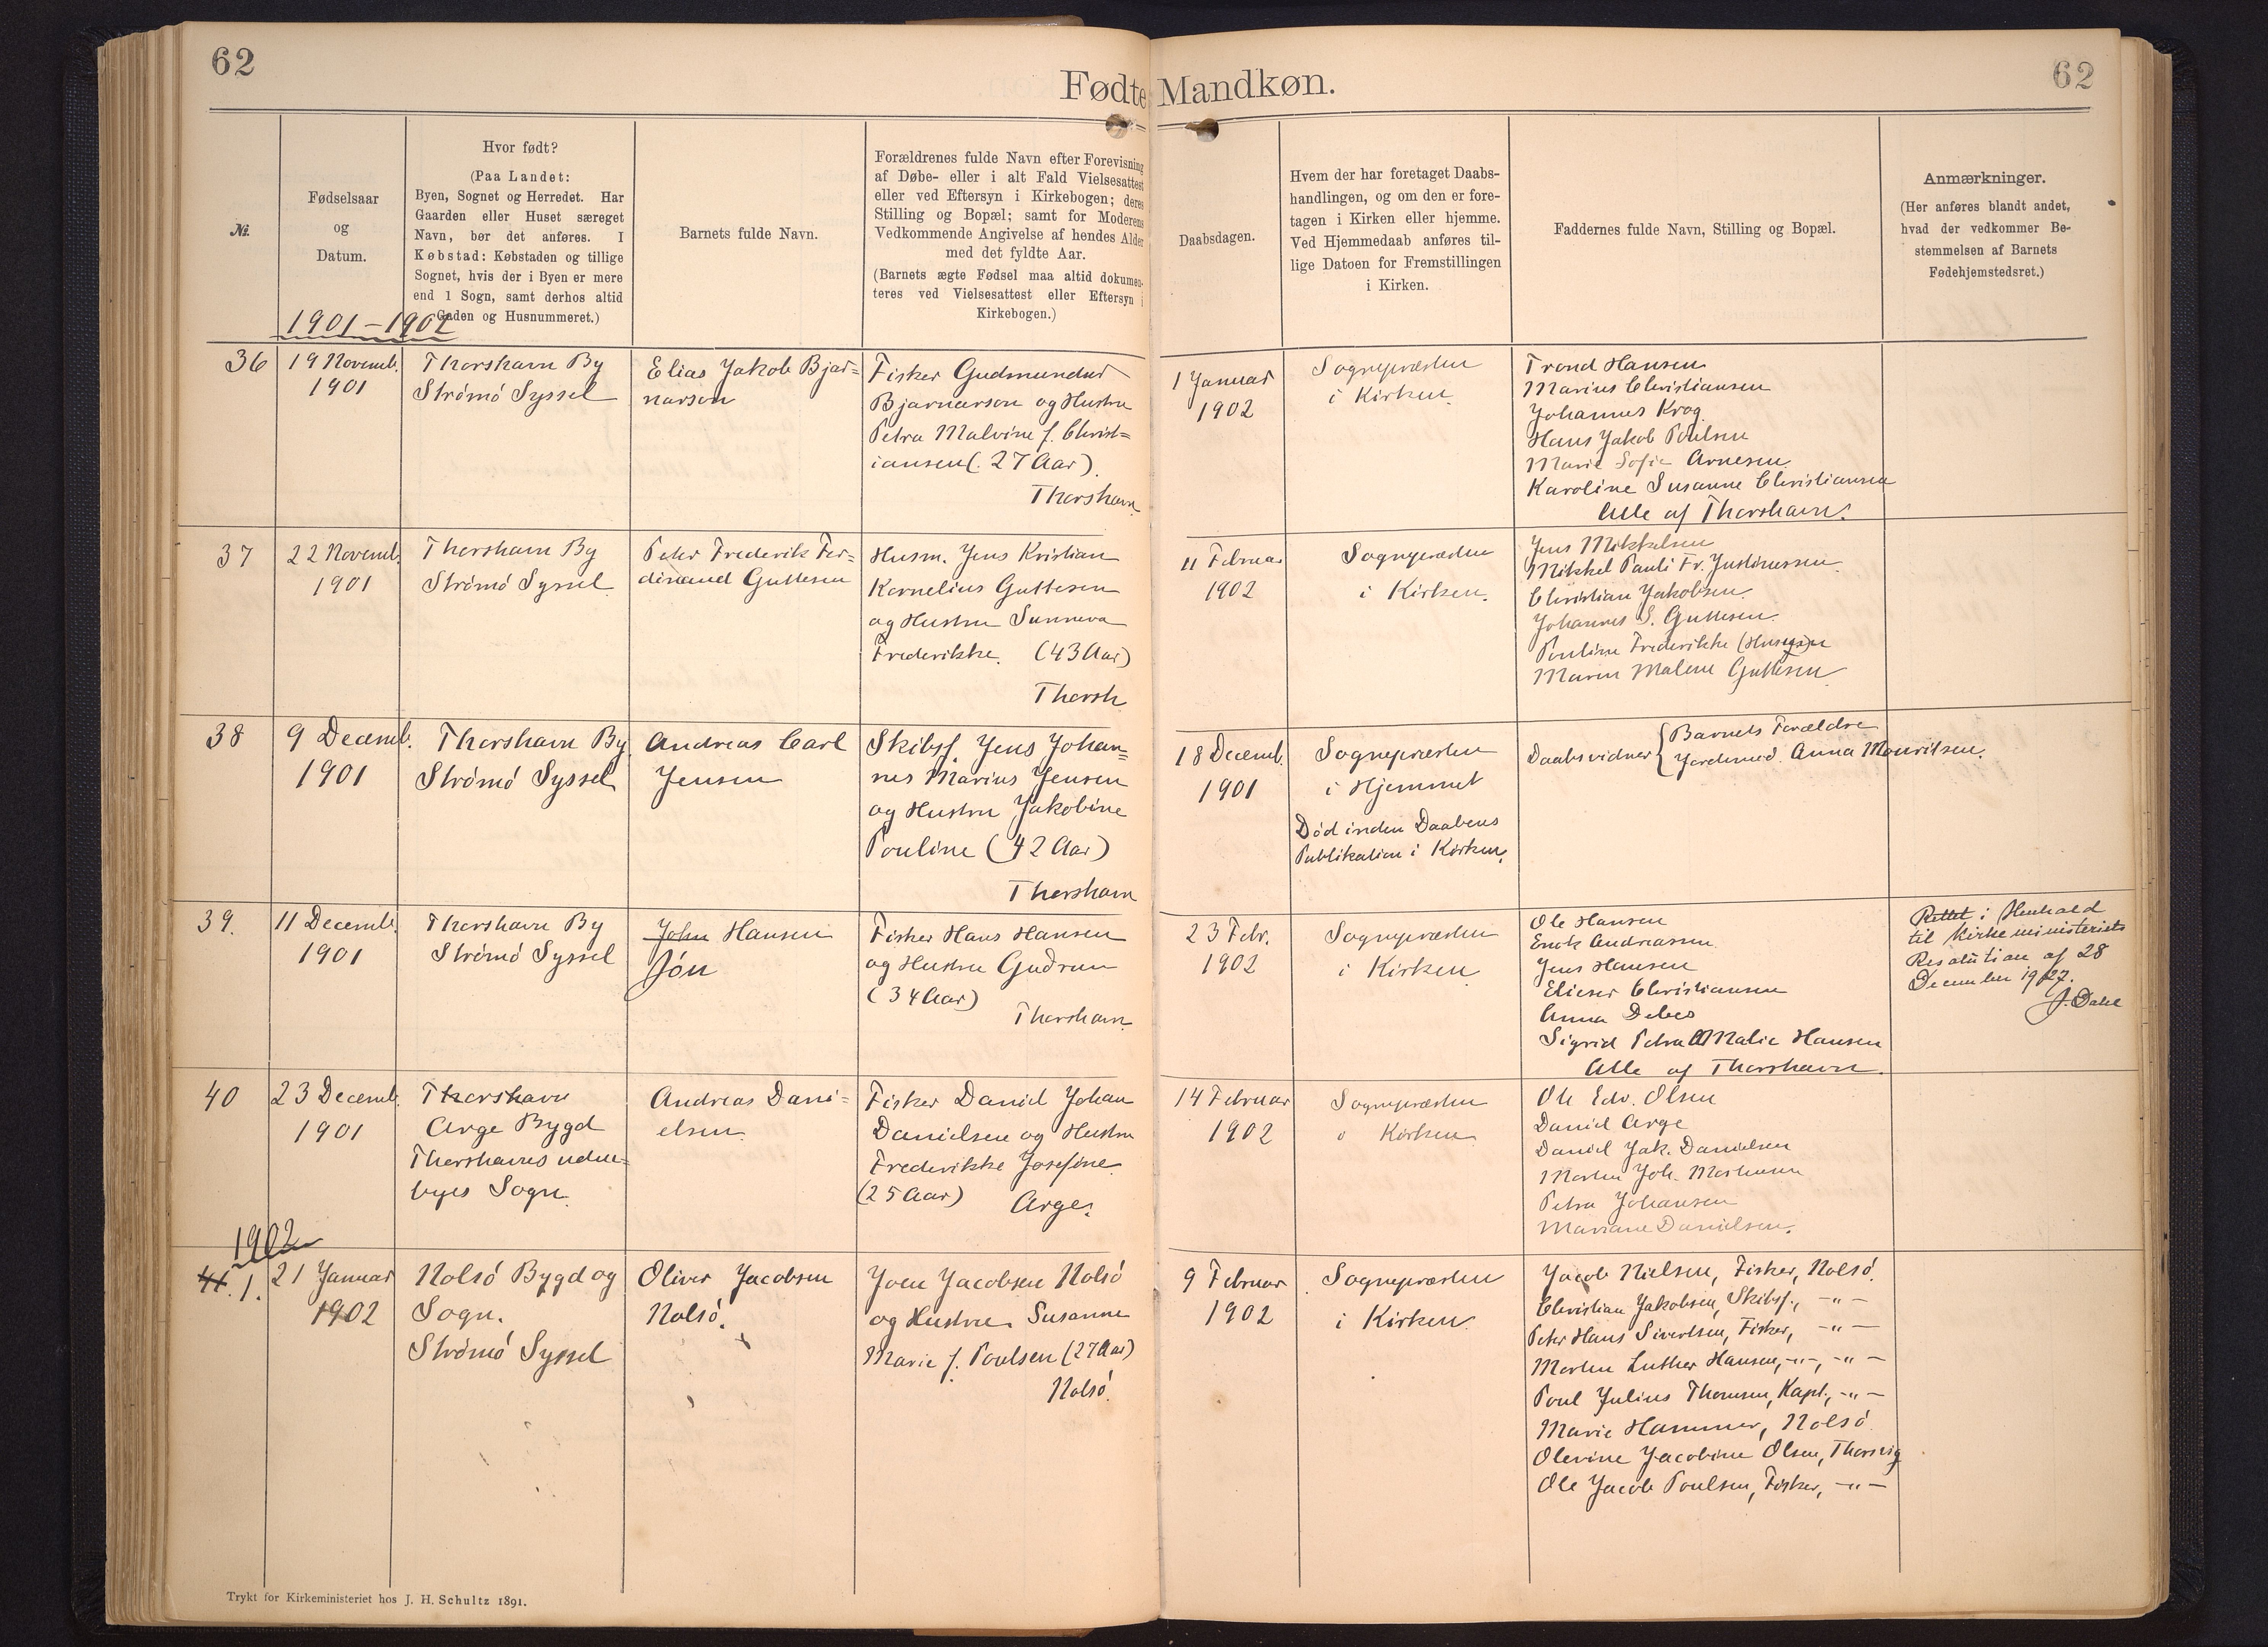 62
Fødte Mandkøn.
62
№
Fødselsaar
og
Datum.
Hvor født?
(Paa Landet:
Byen, Sognet og Herredet. Har
Gaarden eller Huset særeget
Navn, bør det anføres. I
Købstad: Købstaden og tillige
Sognet, hvis der i Byen er mere
end 1 Sogn, samt derhos altid
Gaden og Husnummeret.)
Barnets fulde Navn.
Forældrenes fulde Navn efter Forevisning
af Døbe- eller i alt Fald Vielsesattest
eller ved Eftersyn i Kirkebogen; deres
Stilling og Bopæl; samt for Moderens
Vedkommende Angivelse af hendes Alder
med det fyldte Aar.
(Barnets ægte Fødsel maa altid dokumen-
teres ved Vielsesattest eller Eftersyn i
Kirkebogen.)
Daabsdagen.
Hvem der har foretaget Daabs-
handlingen, og om den er fore-
tagen i Kirken eller hjemme.
Ved Hjemmedaab anføres til-
lige Datoen for Fremstillingen
i Kirken.
Faddernes fulde Navn, Stilling og Bopæl.
Anmærkninger.
(Her anføres blandt andet,
hvad der vedkommer Be-
stemmelsen af Barnets
Fødehjemstedsret.)
1901-1902
36
19 Novemb.
1901
Thorshavn By
Strömö Syssel
Elias Jakob Bjar=
narson
Fisker Gudmundur
Bjarnarson og Hustru
Petra Malvine f. Christ=
iansen (27 Aar).
Thorshavn
1 Januar
1902
Sognepræsten
i Kirken.
Trond Hansen
Marius Christiansen
Johannes Krog
Hans Jakob Poulsen
Marie Sofie Arnesen
Karoline Susanne Christiansen
Alle af Thorshavn.
37
22 Novemb.
1901
Thorshavn By
Strömö Syssel
Peter Frederik Fer=
dinand Guttesen
Husm. Jens Kristian
Kornelius Guttesen
og Hustru Sunneva
Frederikke. (43 Aar)
Thorsh.
11 Februar
1902
Sognepræsten
i Kirken.
Jens Mikkelsen
Mikkel Pauli Fr. Justinussen.
Christian Jakobsen.
Johannes S. Guttesen.
Pouline Frederikke
Maren Malene Guttesen
38
9 Decemb.
1901
Thorshavn By
Strömö Syssel
Andreas Carl
Jensen
Skibsf. Jens Johan=
nes Marius Jensen
og Hustru Jakobine
Pouline (42 Aar)
Thorshavn
18 Decemb.
1901
Sognepræsten
i Hjemmet
Död inden Daabens
Publikation i Kirken.
Daabsvidner { Barnets Forældre
Jordemod. Anna Mouritsen.
39.
11 Decemb.
1901
Thorshavn By
Strömö Syssel
John Hansen
Jón
Fisker Hans Hansen
og Hustru Gudrun
(34 Aar)
Thorshavn.
23 Febr.
1902
Sognepræsten
i Kirken
Ole Hansen
Enok Andreassen
Jens Hansen
Elieser Christiansen
Anna Debes
Sigrid Petra Malie Hansen
Alle af Thorshavn.
Rettet i Henhold
til Kirkeministeriets
Resolution af 28
December 1927.
J. Dahl
40
23 Decemb.
1901
Thorshavn
Arge Bygd
Thorshavns uden=
byes Sogn.
Andreas Dani=
elsen.
Fisker Daniel Johan
Danielsen og Hustru
Frederikke Josefine
(25 Aar) Arge.
14 Februar
1902
Sognepræsten
i Kirken
Ole Edv. Olsen
Daniel Arge
Daniel Jak. Danielsen
Morten Joh. Mortensen
Petra Johansen
Mariane Danielsen.
1902
41. 1.
21 Januar
1902
Nolsö Bygd og
Sogn.
Strömö Syssel
Oliver Jacobsen
Nolsö.
Joen Jacobsen Nolsö
og Hustru Susanne
Marie f. Poulsen (27 Aar)
Nolsö.
9 Februar
1902
Sognepræsten
i Kirken.
Jacob Nielsen, Fisker, Nolsö.
Christian Jakobsen, Skibsf., -"-
Peter Hans Sivertsen, Fisker, -"-
Morten Luther Hansen, -"-, -"-
Poul Julius Thomsen, Kapt., -"-
Marie Hammer, Nolsö
Olevine Jacobine Olsen, Thorsvig
Ole Jacob Poulsen, Fisker, -"-
Trykt for Kirkeministeriet hos J. H. Schultz 1891.